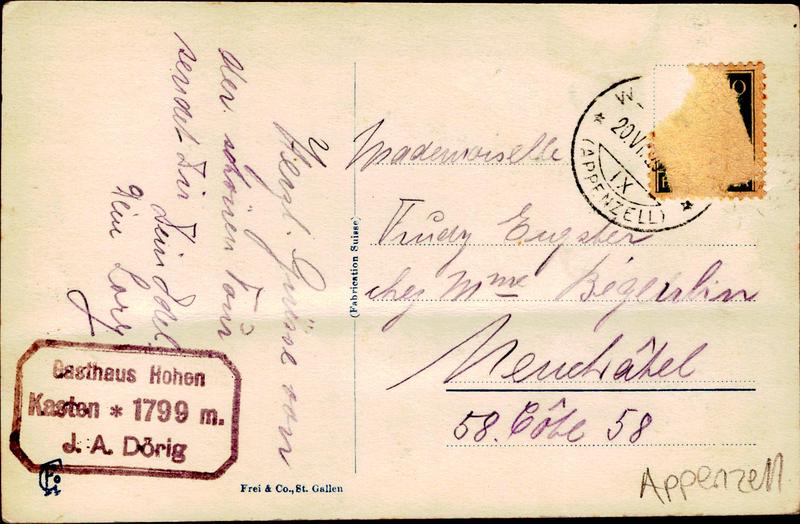 Herzl. Grüsse von
der schönen Tour
sendet Dir Dein
Dein
(Fabrication Suisse)
Mademoiselle
Trudy Eugster
chez Mme Béguelin
Neuchâtel
58. Côte 58
W
20.VI
IX
(APPENZELL)
Gasthaus Hohen
Kasten * 1799 m.
J. A. Dörig
Frei & Co., St. Gallen
Appenzell